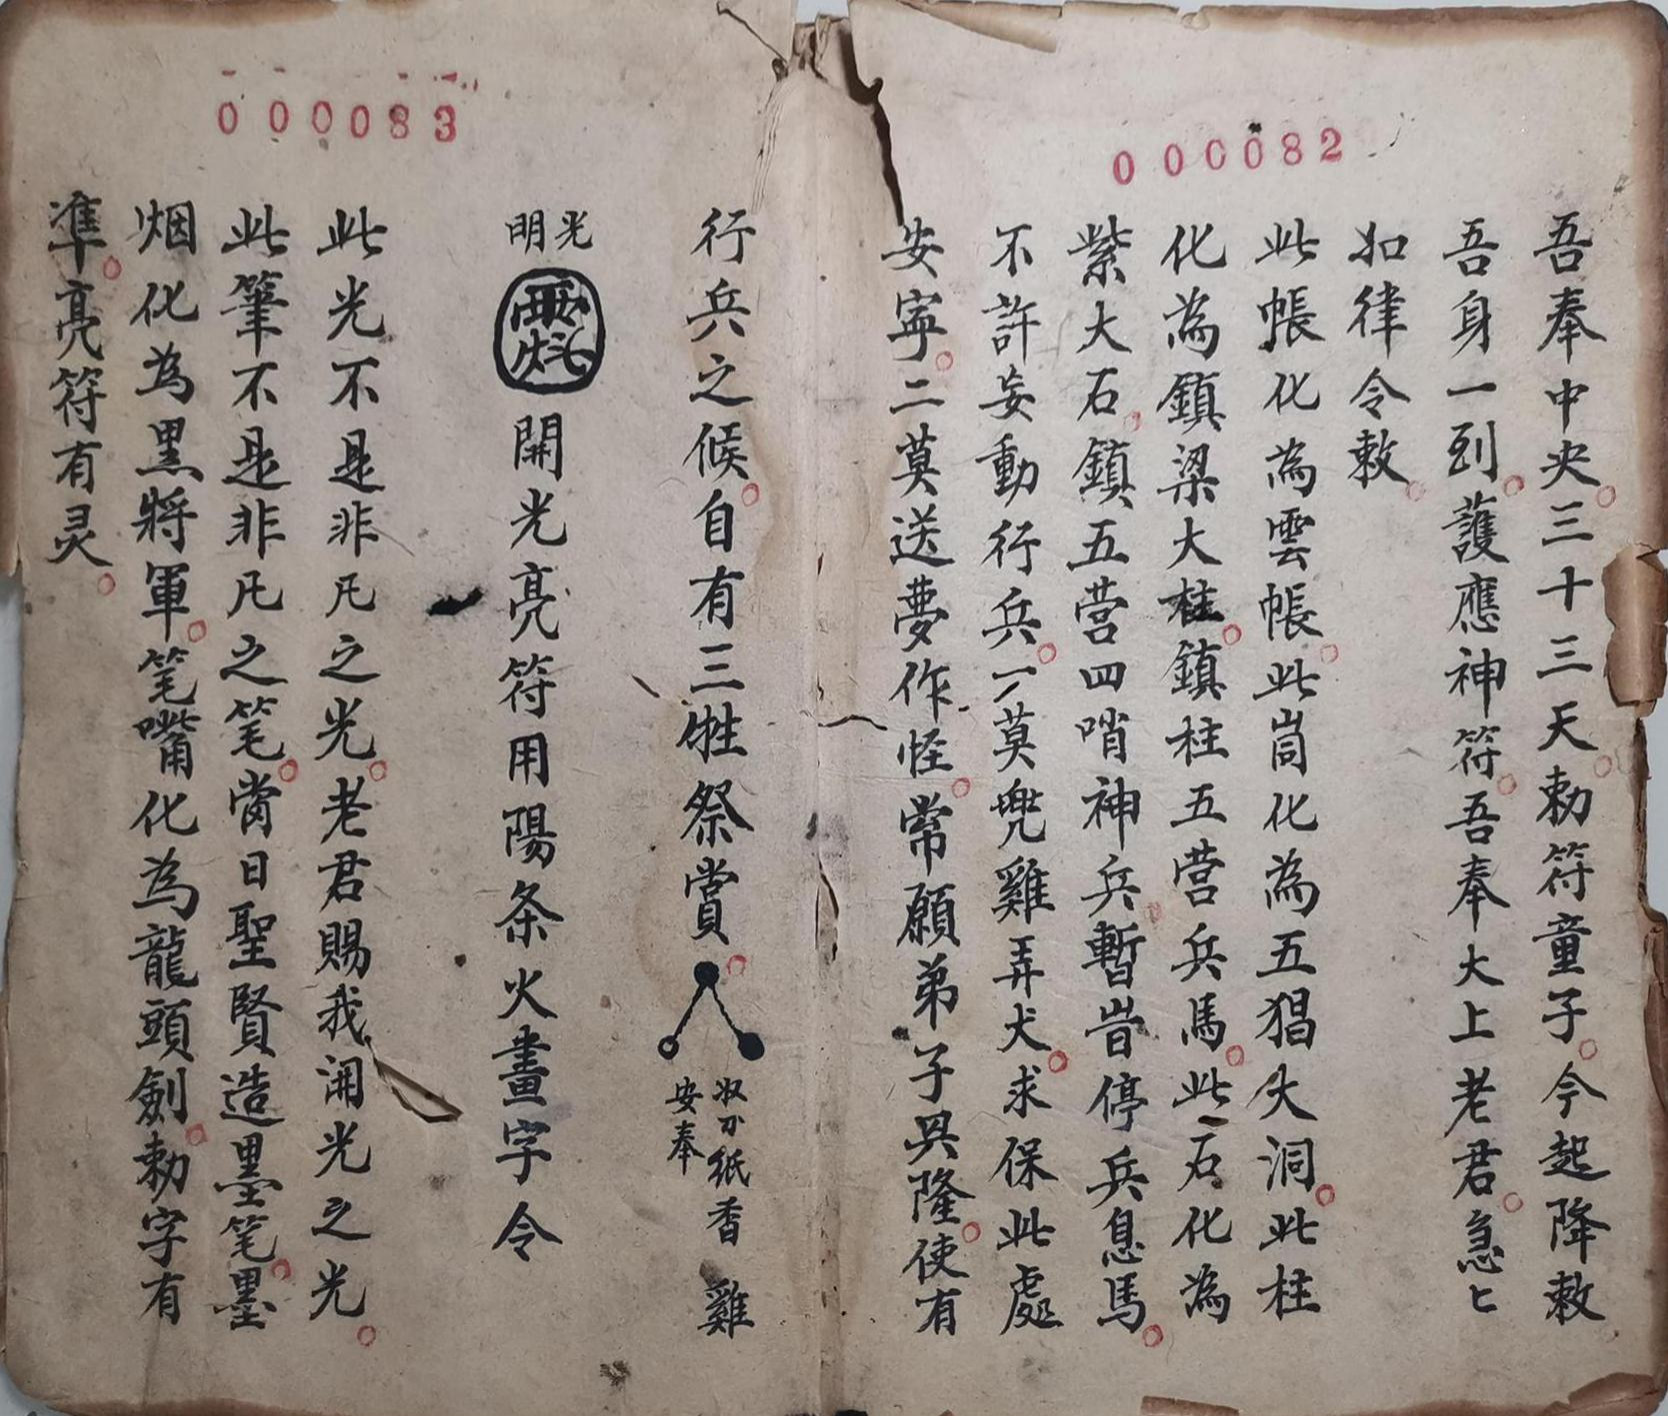 000082
吾奉中央三十三天勅符童子今起降敕
吾身一到護應神符吾奉大上老君急匕
如律令敕
此帳化為雲帳此崗化為五猖大洞此柱
化為鎮梁大柱鎮柱五营兵馬此石化為
紫大石鎮五营四哨神兵暫皆停兵息馬
不許妄動行兵一莫兇雞弄犬求保此處
安寜二莫送夢作怪常願弟子興隆使有
000083
行兵之候自有三牲祭賞
紙香 雞
安奉
光明
開光亮符用陽条火畫字令
此光不是非凡之光老君賜我開光之光
此筆不是非凡之笔當日聖賢造墨笔墨
烟化為黑將軍笔嘴化為龍頭劍勅字有
準亮符有灵